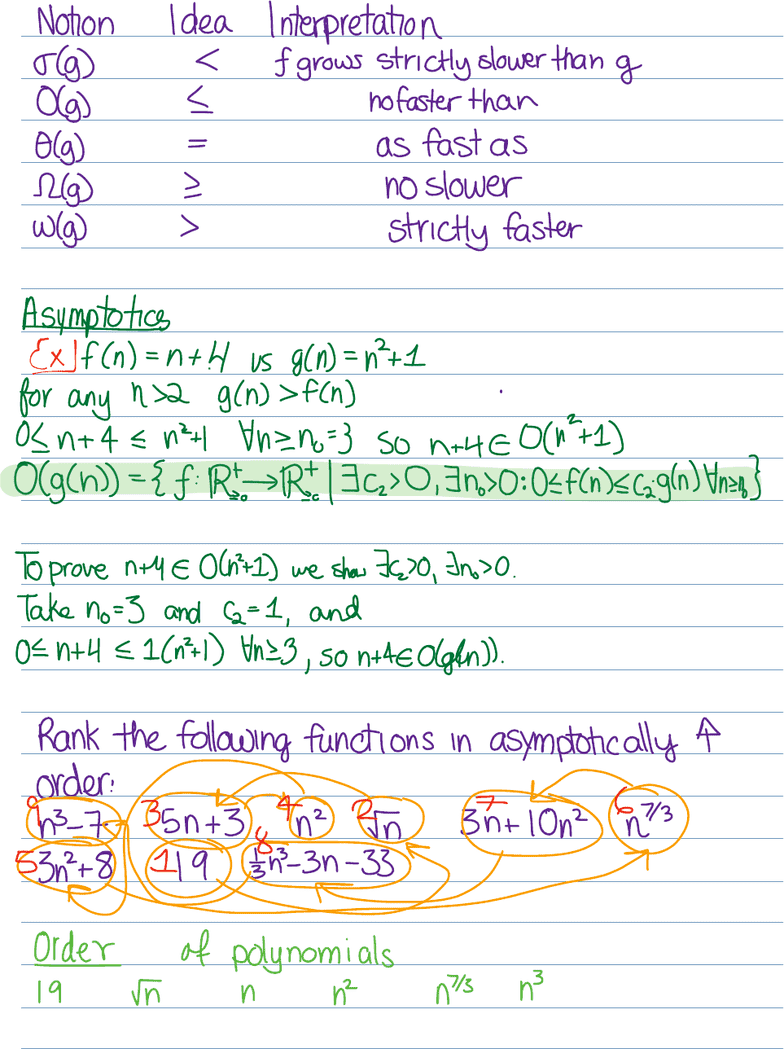 Notion Idea Interpretation
σ(g) < f grows strictly slower than g
O(g) ≤ no faster than
θ(g) = as fast as
Ω(g) ≥ no slower
ω(g) > strictly faster
Asymptotics
Ex] f(n) = n+4 vs g(n) = n²+1
for any n>2 g(n) > f(n)
0≤ n+4 ≤ n²+1 ∀n≥n₀=3 so n+4 ∈ O(n²+1)
O(g(n)) = { f: ℝ⁺≥₀ → ℝ⁺≥₀ | ∃c₂>0, ∃n₀>0: 0≤f(n)≤c₂·g(n) ∀n≥n₀}
To prove n+4 ∈ O(n²+1) we show ∃c₂>0, ∃n₀>0.
Take n₀=3 and c₂=1, and
0≤ n+4 ≤ 1(n²+1) ∀n≥3, so n+4∈O(g(n)).
Rank the following functions in asymptotically ↑
order:
9 n³-7 3 5n+3 4 n² 2 √n 7 3n+10n² 6 n^7/3
5 3n²+8 1 19 8 ⅓n³-3n-33
Order of polynomials
19 √n n n² n^7/3 n³